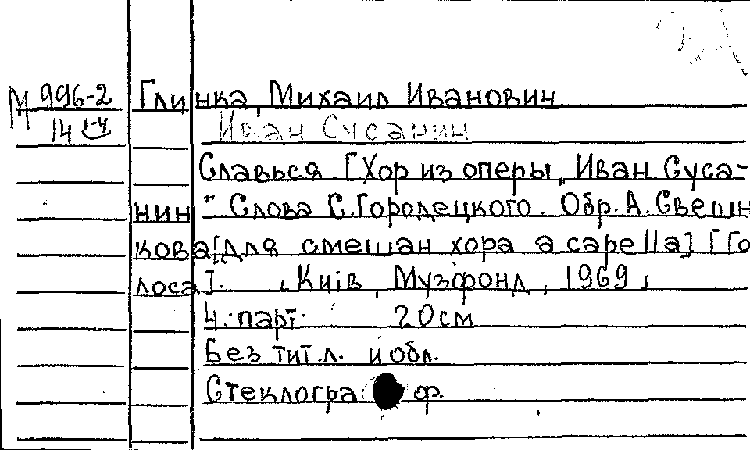 М 996-2
14 1-4
Глинка, Михаил Иванович
Иван Сусанин
Славься [Хор из оперы „Иван Суса-
нин" Слова С.Городецкого. Обр. А. Свешни
кова [для смешан хора a capella] [Го
лоса]. Київ, Музфонд, 1969,
4. парт. 20см
Без тит.л. и обл.
Стеклогра ф.